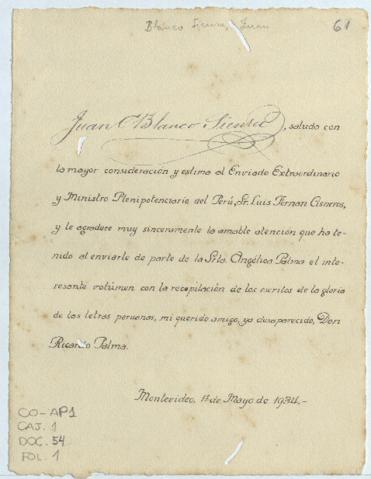 Blanco Juan
61
Juan C Blanco, saluda con
la mayor consideración y estima al Enviado Extraordinario
y Ministro Plenipotenciario del Perú, Sr. Luis Fernan Cisneros,
y le agradece muy sinceramente la amable atención que ha te-
nido al enviarle de parte de la Srta. Angélica Palma el inte-
resante volúmen con la recopilación de los escritos de la gloria
de las letras peruanas, mi querido amigo, ya desaparecido, Don
Ricardo Palma.
Montevideo, de Mayo de 1934.-
CO-AP1
CAJ. 1
DOC. 54
FOL. 1